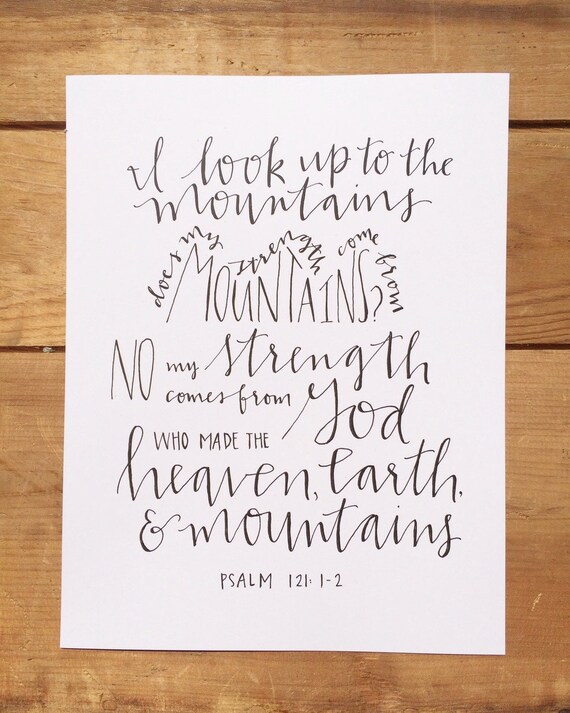 I look up to the
mountains
does my strength come from
MOUNTAINS?
NO my strength
comes from God
WHO MADE THE
heaven, earth,
& mountains
PSALM 121: 1-2